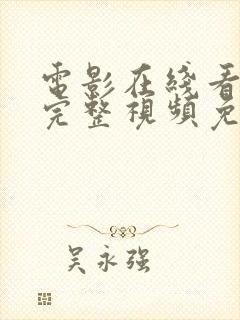 電影在线看
完整視頻免
吴永强